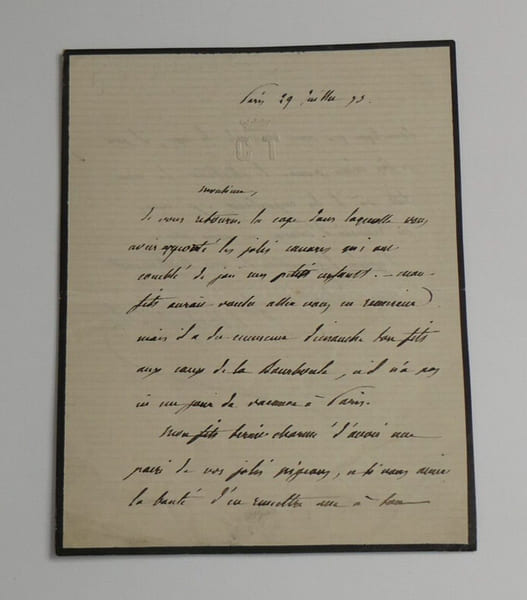 Paris 29 Juillet 93.
Monsieur,
Je vous retourne la cage dans laquelle vous
aviez apporté les jolis canaris qui ont
comblé de joie mes petits enfants. — mon
fils aurait voulu aller vous en remercier
mais il a du Dimanche son fils
aux eaux de la Bourboule, et il n'a pas
eu un jour de vacance à Paris.
Mon fils serait charmé d'avoir une
paire de vos jolis pigeons, et si vous aviez
la bonté d'en remettre une à